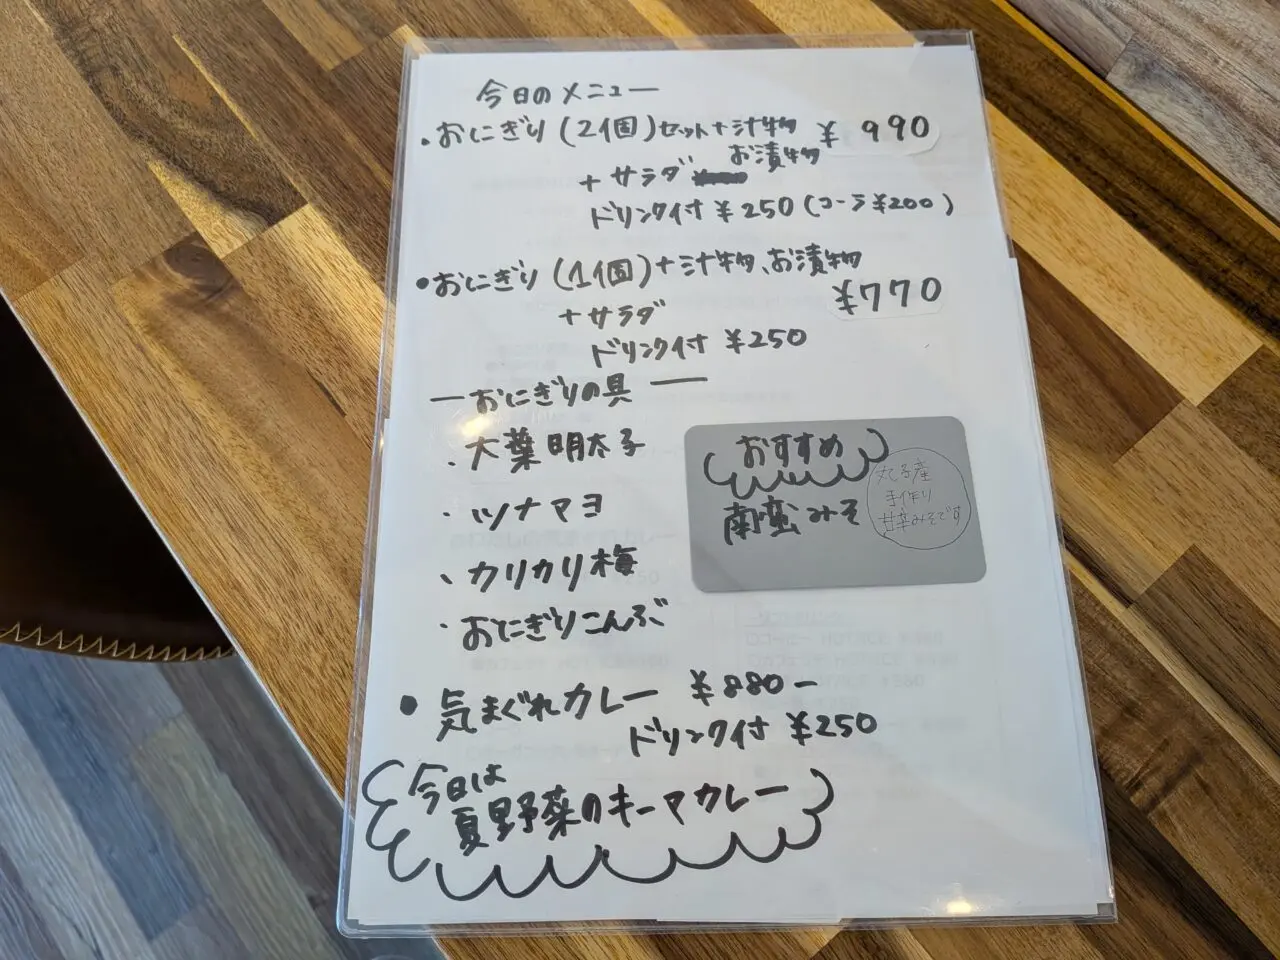 今日のメニュー
・おにぎり(2個)セット+汁物 ¥990
お漬物
+サラダ
ドリンク付 ¥250(コーラ¥200)
・おにぎり(1個)+汁物、お漬物
¥770
+サラダ
ドリンク付 ¥250
―おにぎりの具―
・大葉明太子
・ツナマヨ
・カリカリ梅
・おにぎりこんぶ
おすすめ
南蛮みそ
丸子産
手作り
甘辛みそです
・気まぐれカレー ¥880-
ドリンク付 ¥250
今日は
夏野菜のキーマカレー